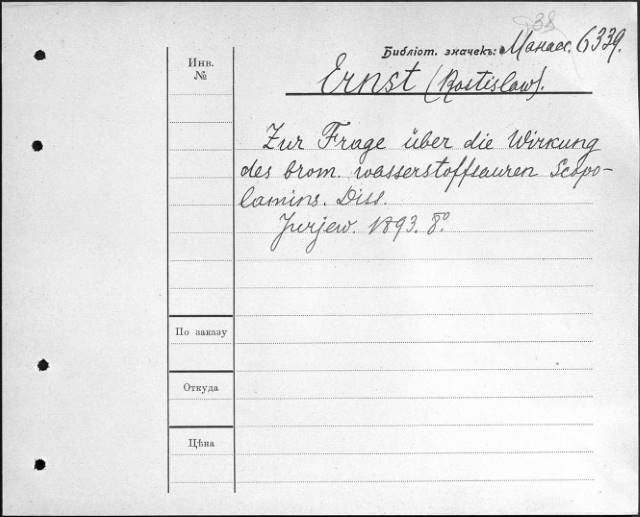 38
Библіот. значекъ: Манасс. 6339.
Инв.
№
Ernst (Rostislaw).
Zur Frage über die Wirkung
des brom. wasserstoffsauren Scopo-
lamins. Diss.
Jurjew. 1893. 8°.
По заказу
Откуда
Цѣна